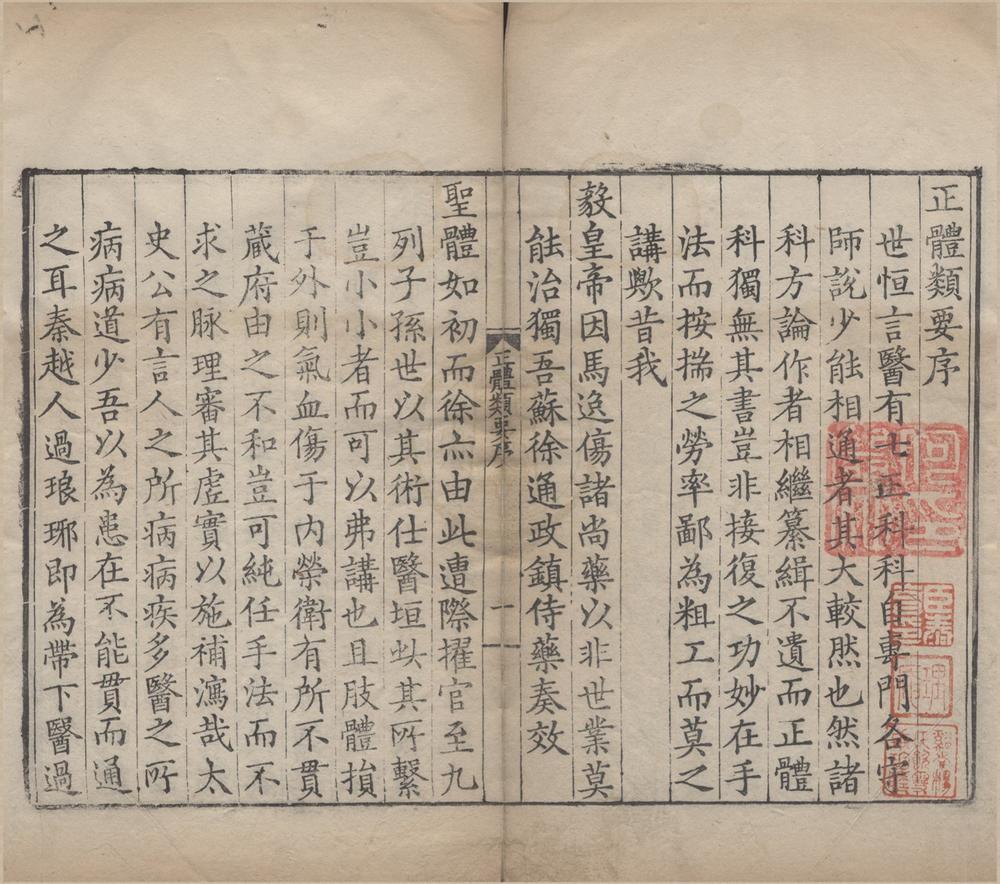 正體類要序
世恒言醫有七正科科自專門各守
師說少能相通者其大較然也然諸
科方論作者相繼纂緝不遺而正體
科獨無其書豈非接復之功妙在手
法而按揣之勞率鄙為粗工而莫之
講歟昔我
毅皇帝因馬逸傷諸尚藥以非世業莫
能治獨吾蘇徐通政鎮侍藥奏效
正體類要序
一
聖體如初而徐亦由此遭際擢官至九
列子孫世以其術仕醫垣此其所繫
豈小小者而可以弗講也且肢體損
于外則氣血傷于內榮衛有所不貫
藏府由之不和豈可純任手法而不
求之脉理審其虛實以施補瀉哉太
史公有言人之所病病疾多醫之所
病病道少吾以為患在不能貫而通
之耳秦越人過琅琊即為帶下醫過